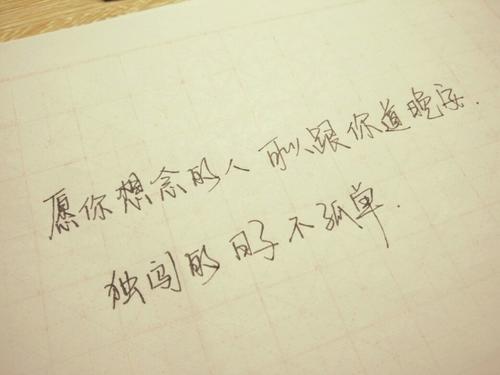 愿你想念的人 可以跟你道晚安.
独闯的日子不孤单.